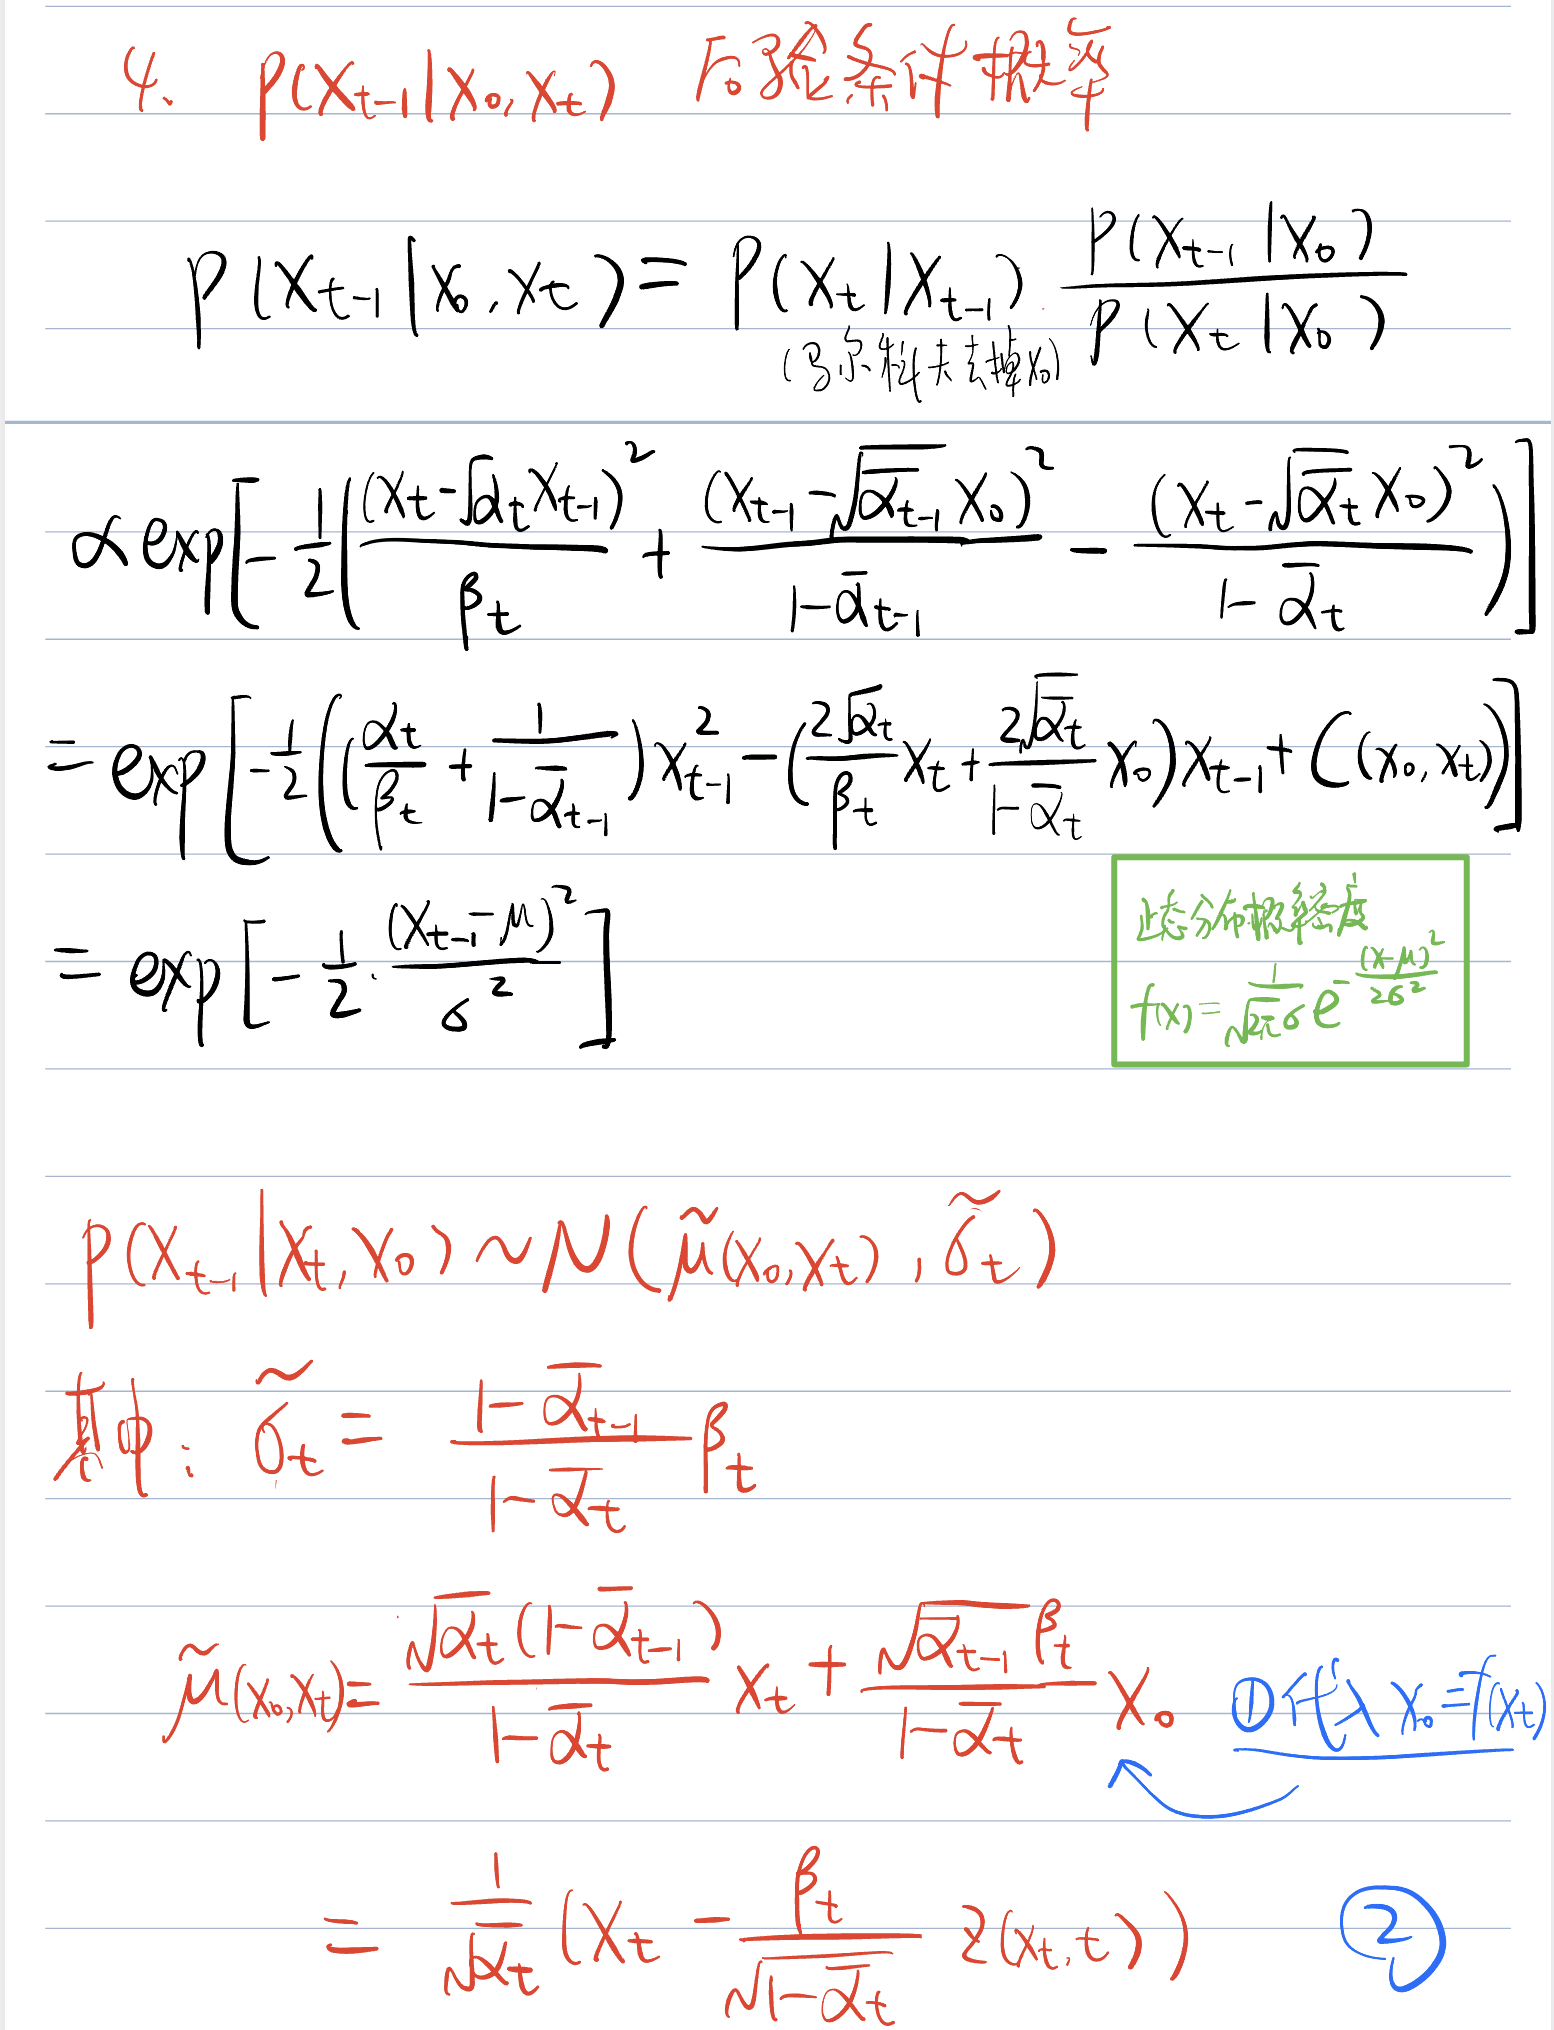 4. P(X_{t-1}|X_0, X_t) 后验条件概率
P(X_{t-1}|X_0, X_t) = P(X_t|X_{t-1}) \frac{P(X_{t-1}|X_0)}{P(X_t|X_0)}
(马尔科夫去掉X_0)
∝ exp[-\frac{1}{2}(\frac{(X_t-\sqrt{α_t}X_{t-1})^2}{β_t} + \frac{(X_{t-1}-\sqrt{\bar{α}_{t-1}}X_0)^2}{1-\bar{α}_{t-1}} - \frac{(X_t-\sqrt{\bar{α}_t}X_0)^2}{1-\bar{α}_t})]
= exp[-\frac{1}{2}((\frac{α_t}{β_t} + \frac{1}{1-\bar{α}_{t-1}})X_{t-1}^2 - (\frac{2\sqrt{α_t}}{β_t}X_t + \frac{2\sqrt{\bar{α}_t}}{1-\bar{α}_t}X_0)X_{t-1} + C(X_0, X_t))]
= exp[-\frac{1}{2}·\frac{(X_{t-1}-μ)^2}{σ^2}]
正态分布概率密度
f(x) = \frac{1}{\sqrt{2π}σ}e^{-\frac{(x-μ)^2}{2σ^2}}
P(X_{t-1}|X_t, X_0) ~ N(\tilde{μ}(X_0, X_t), \tilde{σ}_t)
其中: \tilde{σ}_t = \frac{1-\bar{α}_{t-1}}{1-\bar{α}_t}β_t
\tilde{μ}(X_0, X_t) = \frac{\sqrt{α_t}(1-\bar{α}_{t-1})}{1-\bar{α}_t}X_t + \frac{\sqrt{\bar{α}_{t-1}}β_t}{1-\bar{α}_t}X_0 ①代入 X_0=f(X_t)
= \frac{1}{\sqrt{\bar{α}_t}}(X_t - \frac{β_t}{\sqrt{1-\bar{α}_t}}Z(X_t, t)) ②